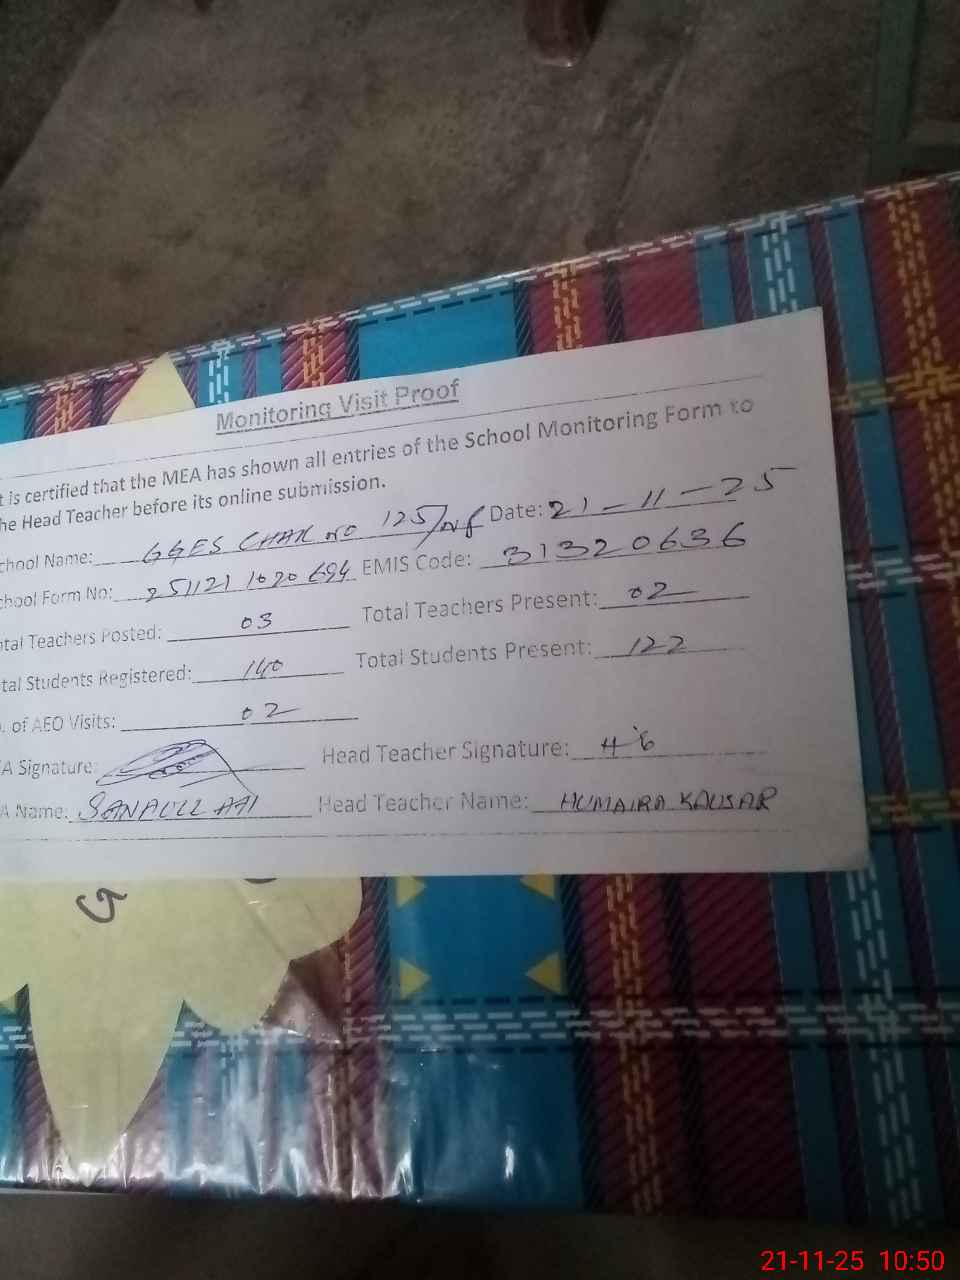 Monitoring Visit Proof
t is certified that the MEA has shown all entries of the School Monitoring Form to
he Head Teacher before its online submission.
chool Name: GGES CHAK NO 125/NB Date: 21-11-25
chool Form No: 251121 1020694 EMIS Code: 31320636
otal Teachers Posted: 03 Total Teachers Present: 02
tal Students Registered: 140 Total Students Present: 122
. of AEO Visits: 02
A Signature: Head Teacher Signature:
A Name: SANAULLAH Head Teacher Name: HUMAIRA KAUSAR
G
21-11-25 10:50